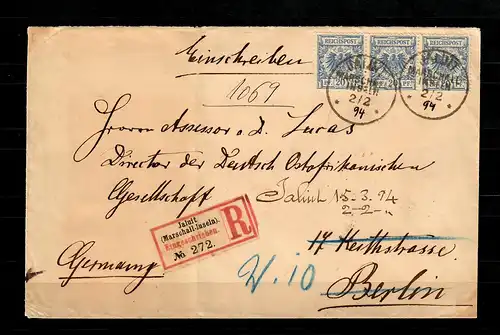 Einschreiben
1069
REICHSPOST REICHSPOST REICHSPOST
20 20
JALUIT
MARSCHALL-
INSELN
2/2
94
MARSCHALL-
INSELN
2/2
94
Herrn Assessor a. D. Lucas
Director der Deutsch Ostafrikanischen
Gesellschaft
Jaluit 15.3.94
2-2-
Jaluit
(Marschall-Inseln).
Eingeschrieben.
№ 272.
R
17 Keithstrasse
Germany
W. 10
Berlin